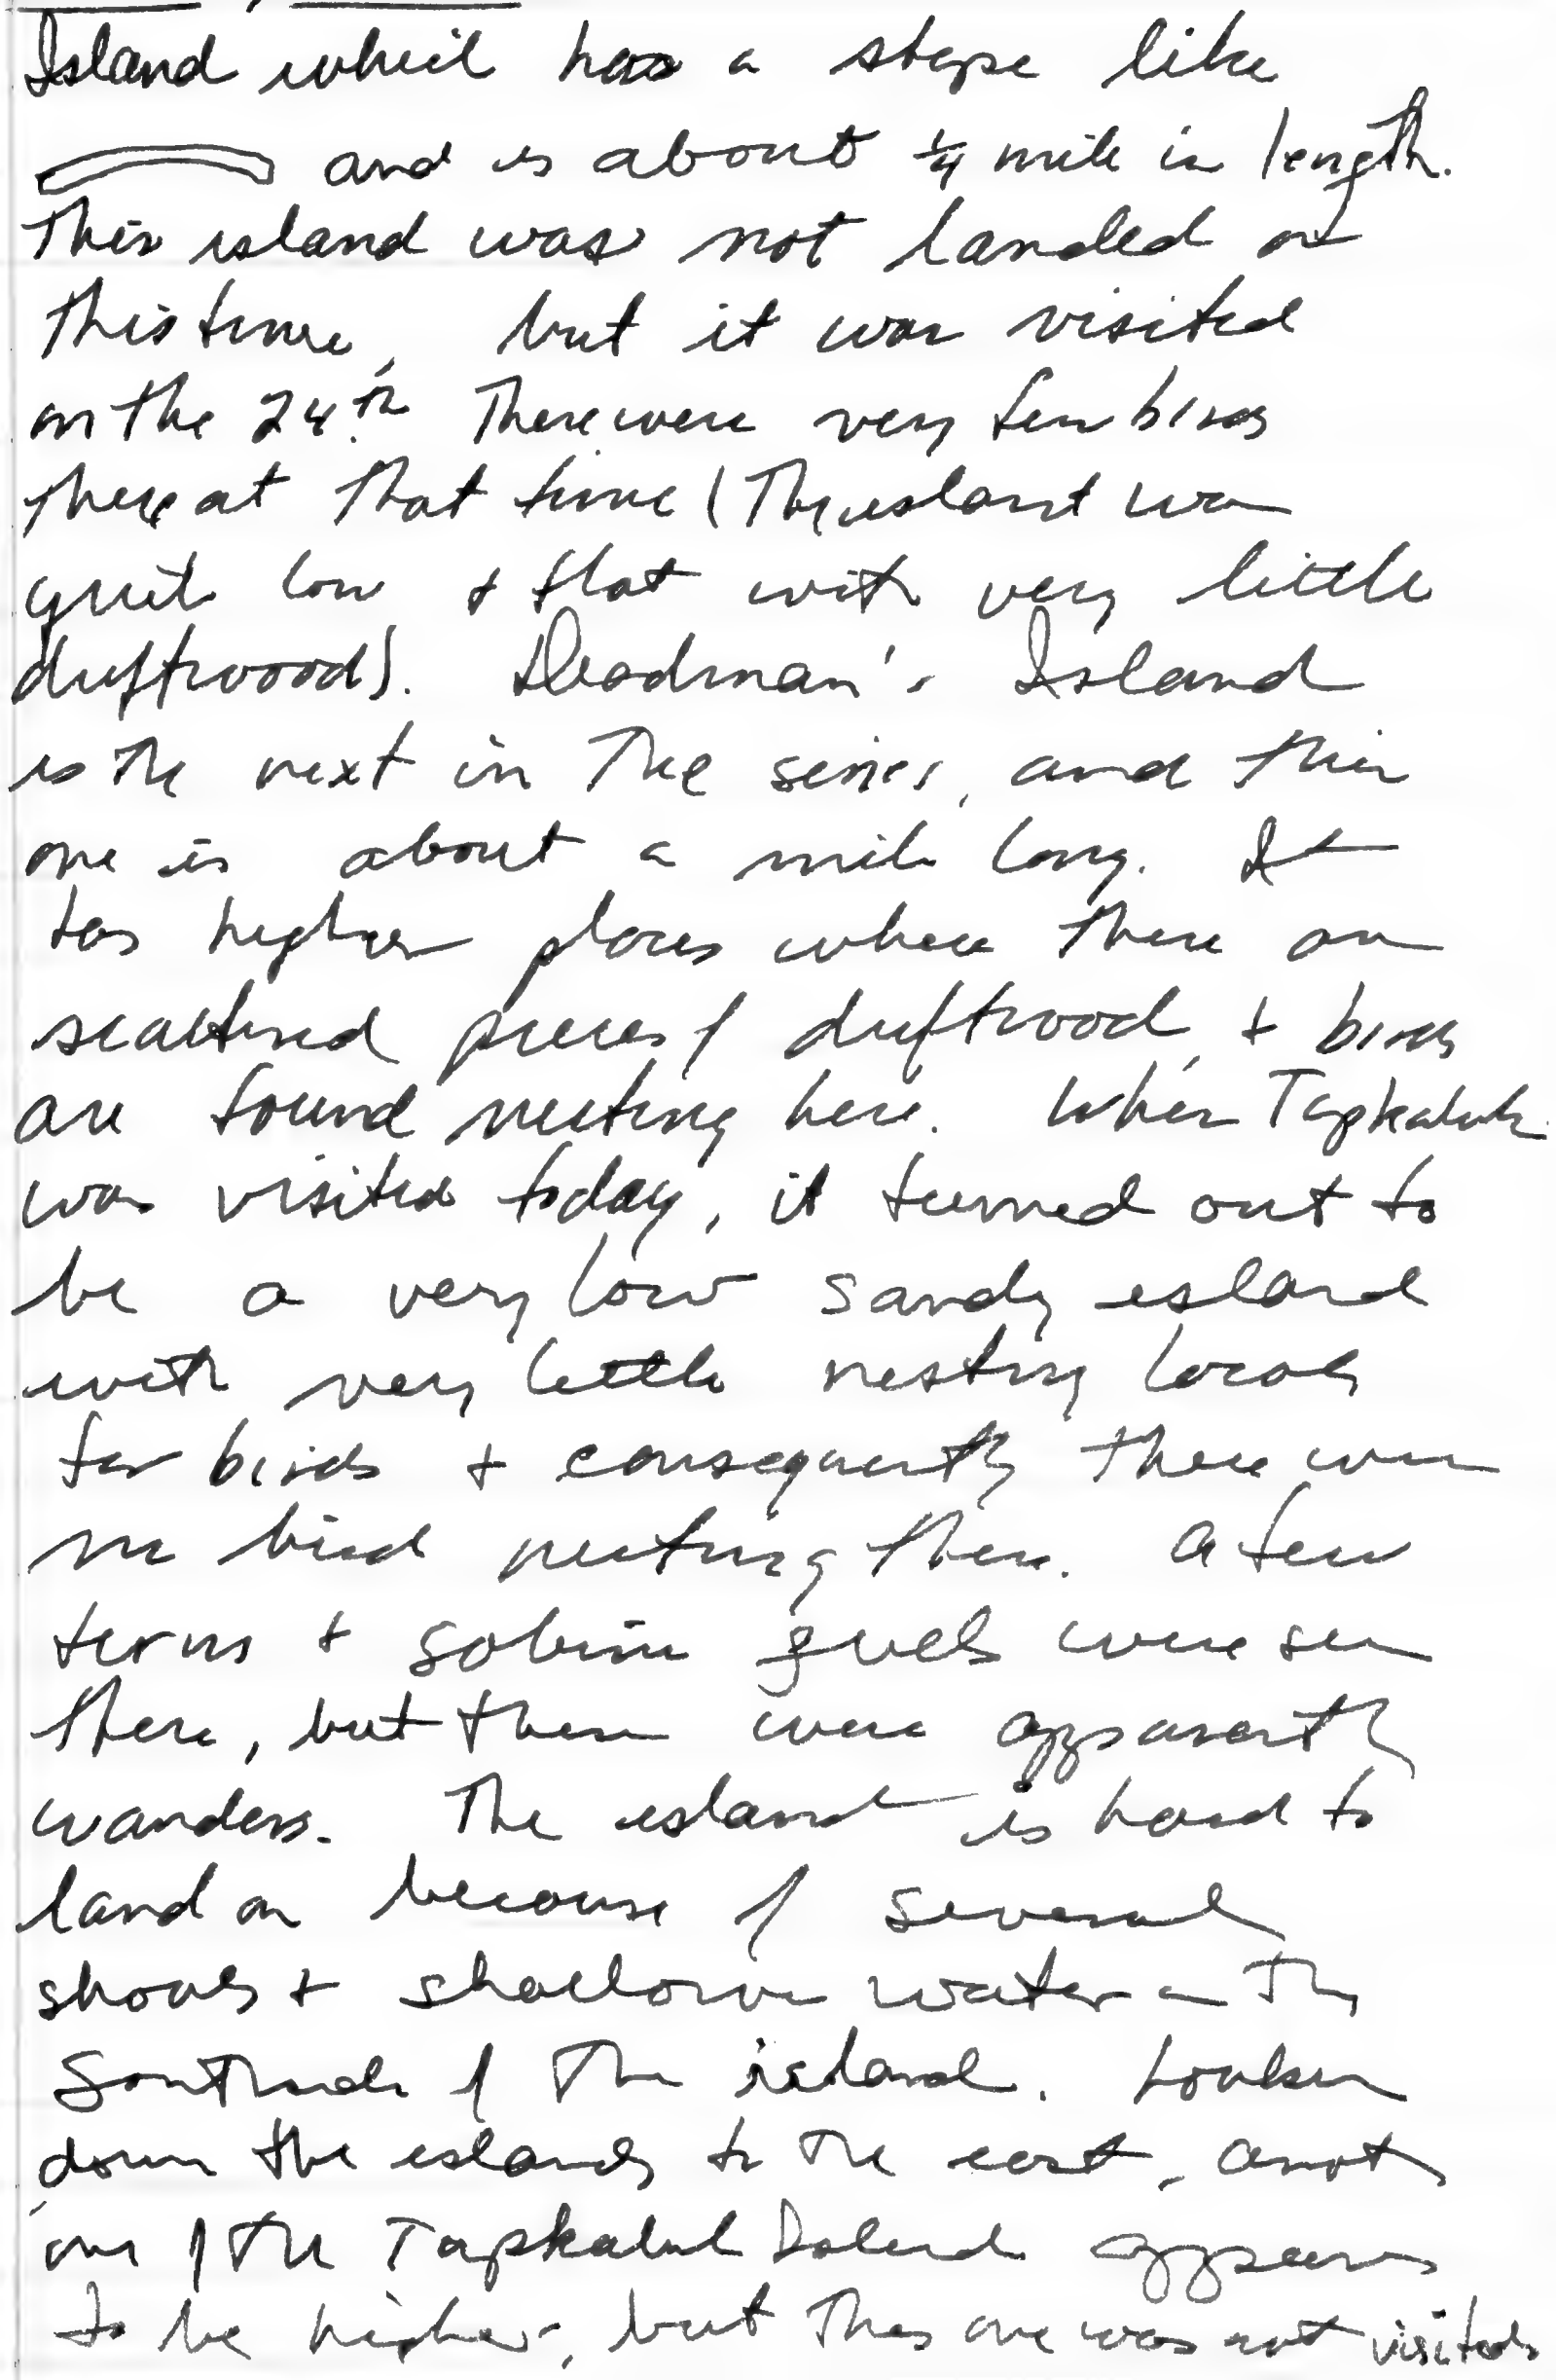 Island which has a shape like
and is about 1/4 mile in length.
This island was not landed at
this time, but it was visited
on the 24th. There were very few birds
there at that time (The island was
quite low & flat with very little
driftwood). Deadman's Island
is the next in the series, and this
one is about a mile long. It
has higher places where there are
scattered pieces of driftwood, & birds
are found nesting here. When Tapkaluk
was visited today, it turned out to
be a very low sandy island
with very little nesting locals
for birds & consequently there were
no bird nesting there. A few
terns & Sabine gulls were seen
there, but these were apparently
wanders. The island is hard to
land on because of several
shoals & shallow water on the
South side of the island. Looking
down the islands to the east, another
one of the Tapkaluk Island appears
to be higher, but this one was not visited